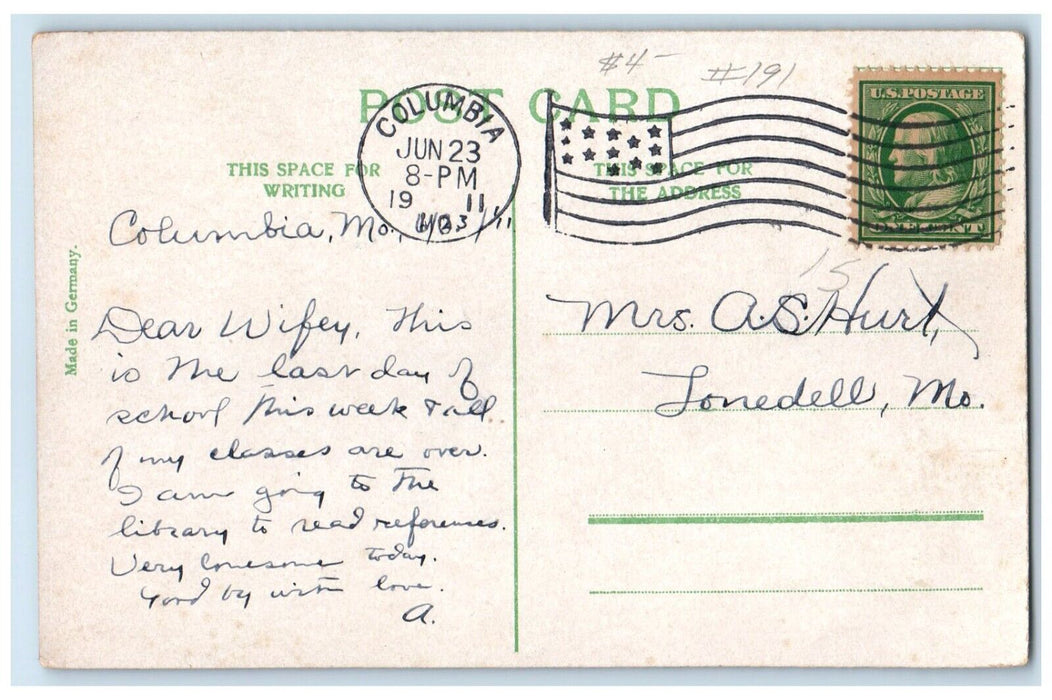 #4-
#191
POST CARD
COLUMBIA
JUN 23
8-PM
19 11
MO.
U.S.POSTAGE
ONE CENT
THIS SPACE FOR
WRITING
THIS SPACE FOR
THE ADDRESS
Made in Germany.
Columbia, Mo., 6/23/11
Dear Wifey, This
is the last day of
school this week & all
of my classes are over.
I am going to the
library to read references.
Very lonesome today.
Good by with love.
A.
15
Mrs. A.S. Hurt,
Lonedell, Mo.